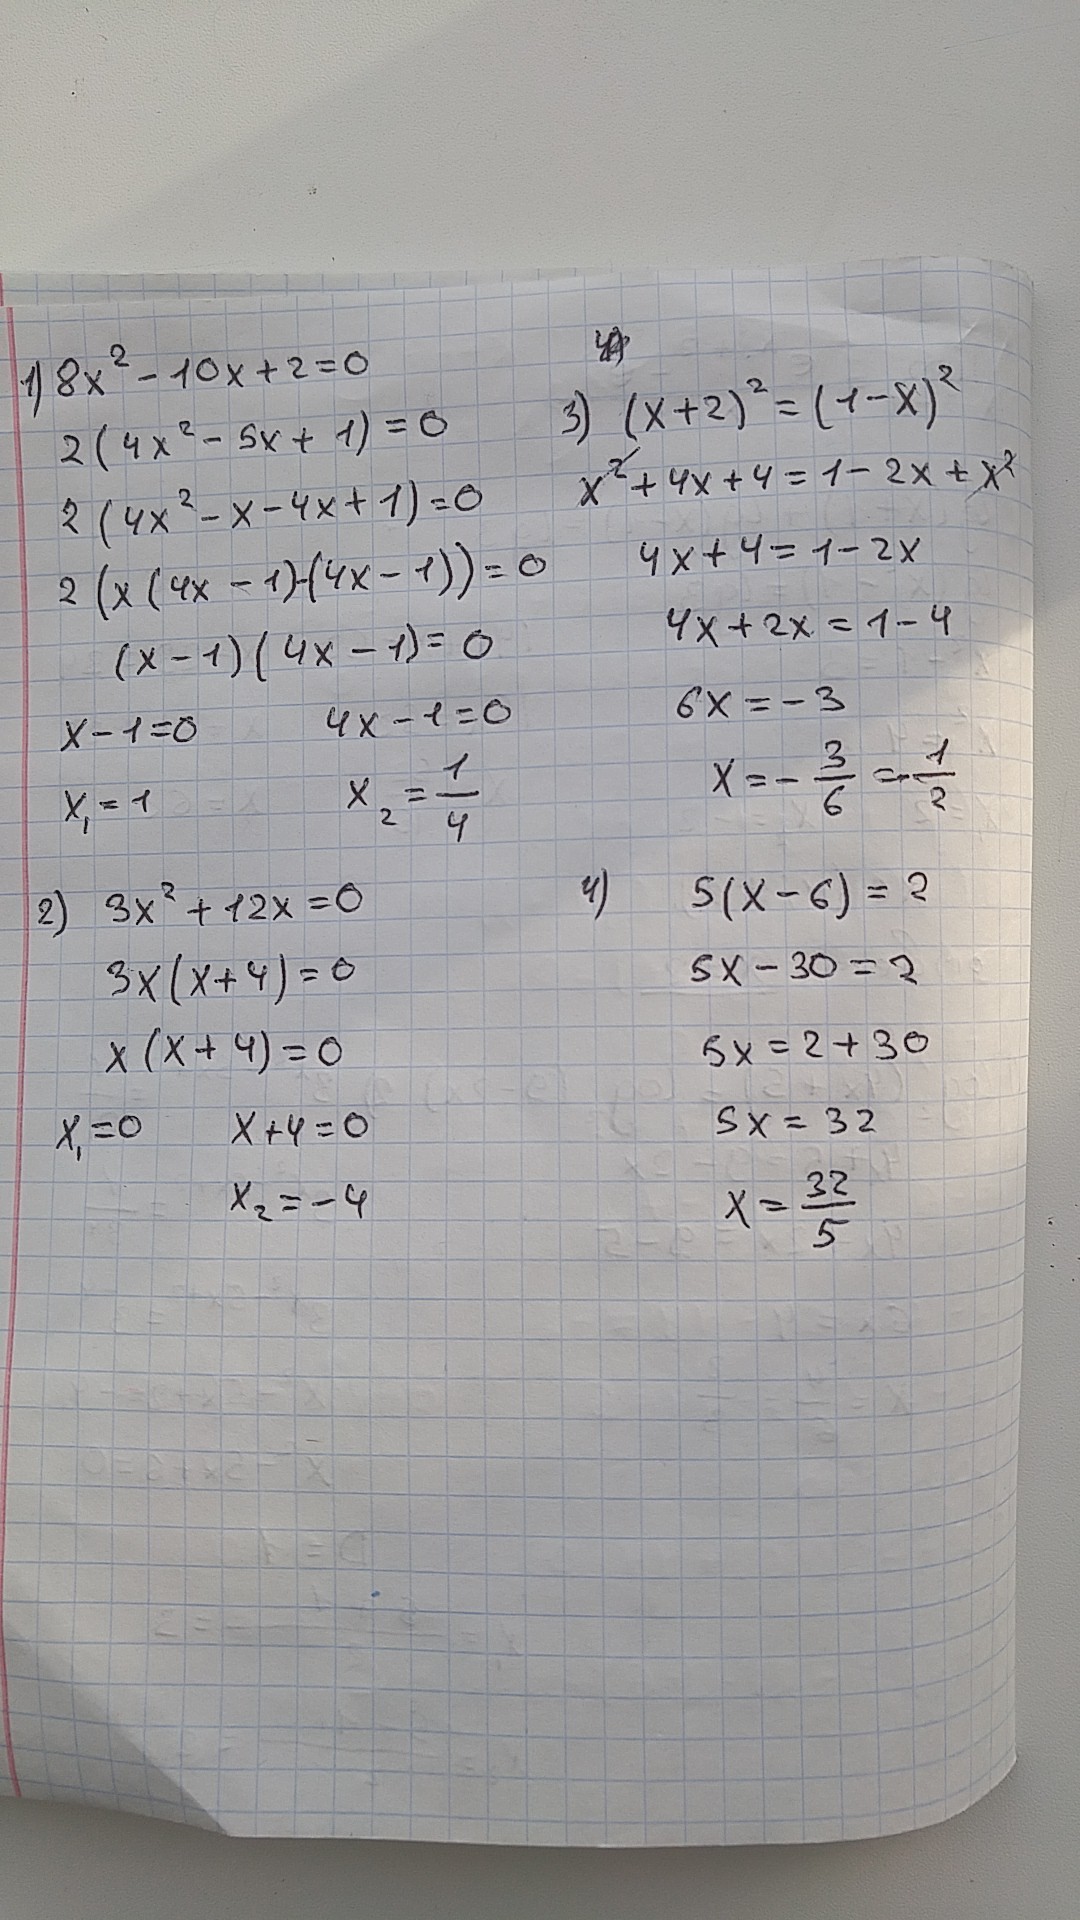 1) 8x² - 10x + 2 = 0
2(4x² - 5x + 1) = 0
2(4x² - x - 4x + 1) = 0
2(x(4x - 1)-(4x - 1)) = 0
(x - 1)(4x - 1) = 0
x - 1 = 0    4x - 1 = 0
x₁ = 1    x₂ = 1/4
2) 3x² + 12x = 0
3x(x + 4) = 0
x(x + 4) = 0
x₁ = 0    x + 4 = 0
x₂ = -4
3) (x + 2)² = (1 - x)²
x² + 4x + 4 = 1 - 2x + x²
4x + 4 = 1 - 2x
4x + 2x = 1 - 4
6x = -3
x = - 3/6 = - 1/2
4) 5(x - 6) = 2
5x - 30 = 2
5x = 2 + 30
5x = 32
x = 32/5